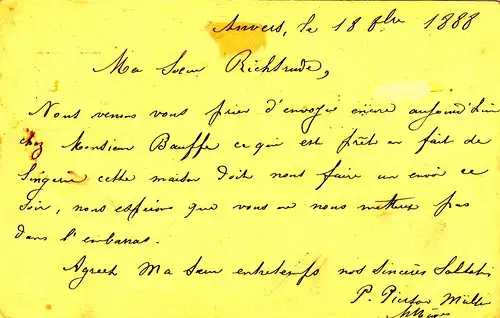 Anvers, le 18 8bre 1888
Ma Sœur Richtrude,
Nous venons vous prier d'envoyer encore aujourd'hui
chez Monsieur Bauffe ce qui est prêt en fait de
lingerie cette maison doit nous faire un envoi ce
soir, nous espérons que vous ne nous mettrez pas
dans l'embarras.
Agréez Ma Sœur entretemps nos sincères Salutat
P. Pictor Müller